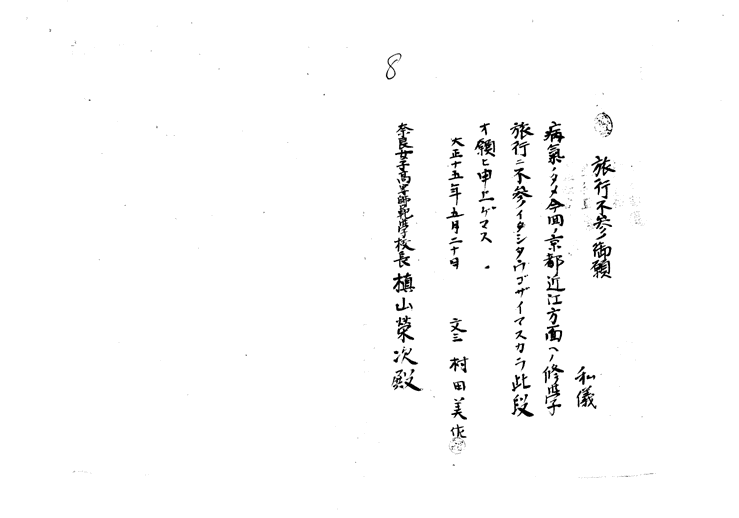 8
旅行不参ノ御願
私儀
病氣ノタメ今回ノ京都近江方面ヘノ修學
旅行ニ不参イタシタウゴザイマスカラ此段
オ願ヒ申上ゲマス
大正十五年五月二十日
文三 村田美佐
奈良女子高等師範學校長 槙山榮次殿